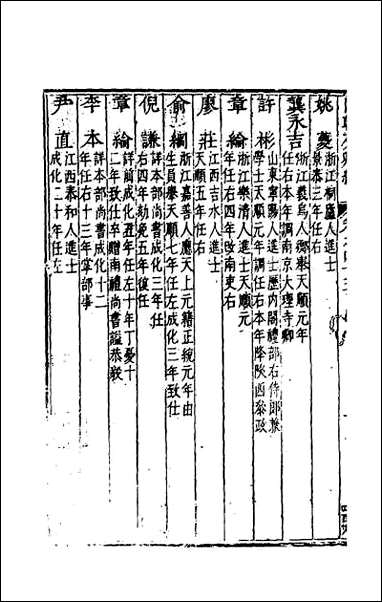 姚夔
浙江桐廬人進士
景泰三年任右
龔永吉
浙江義烏人鄉舉天順元年
任右本年調南京大理寺卿
許彬
山東寧陽人進士歷內閣禮部右侍郎兼
學士天順元年調任右本年降陝西參政
章綸
浙江樂清人進士天順元
年任右四年改南吏右
廖莊
江西吉水人進士
天順五年任右
俞綱
浙江嘉善人應天上元籍正統元年由
生員舉天順七年任左成化三年致仕
倪謙
詳本部尚書成化三年任
右四年劾免五年復任
章綸
詳前成化丑年任左十年丁憂十
二年致仕卒贈南禮尚書謚恭毅
李本
詳本部尚書成化十二
年任右十三年掌部事
尹直
江西泰和人進士
成化二十年任左